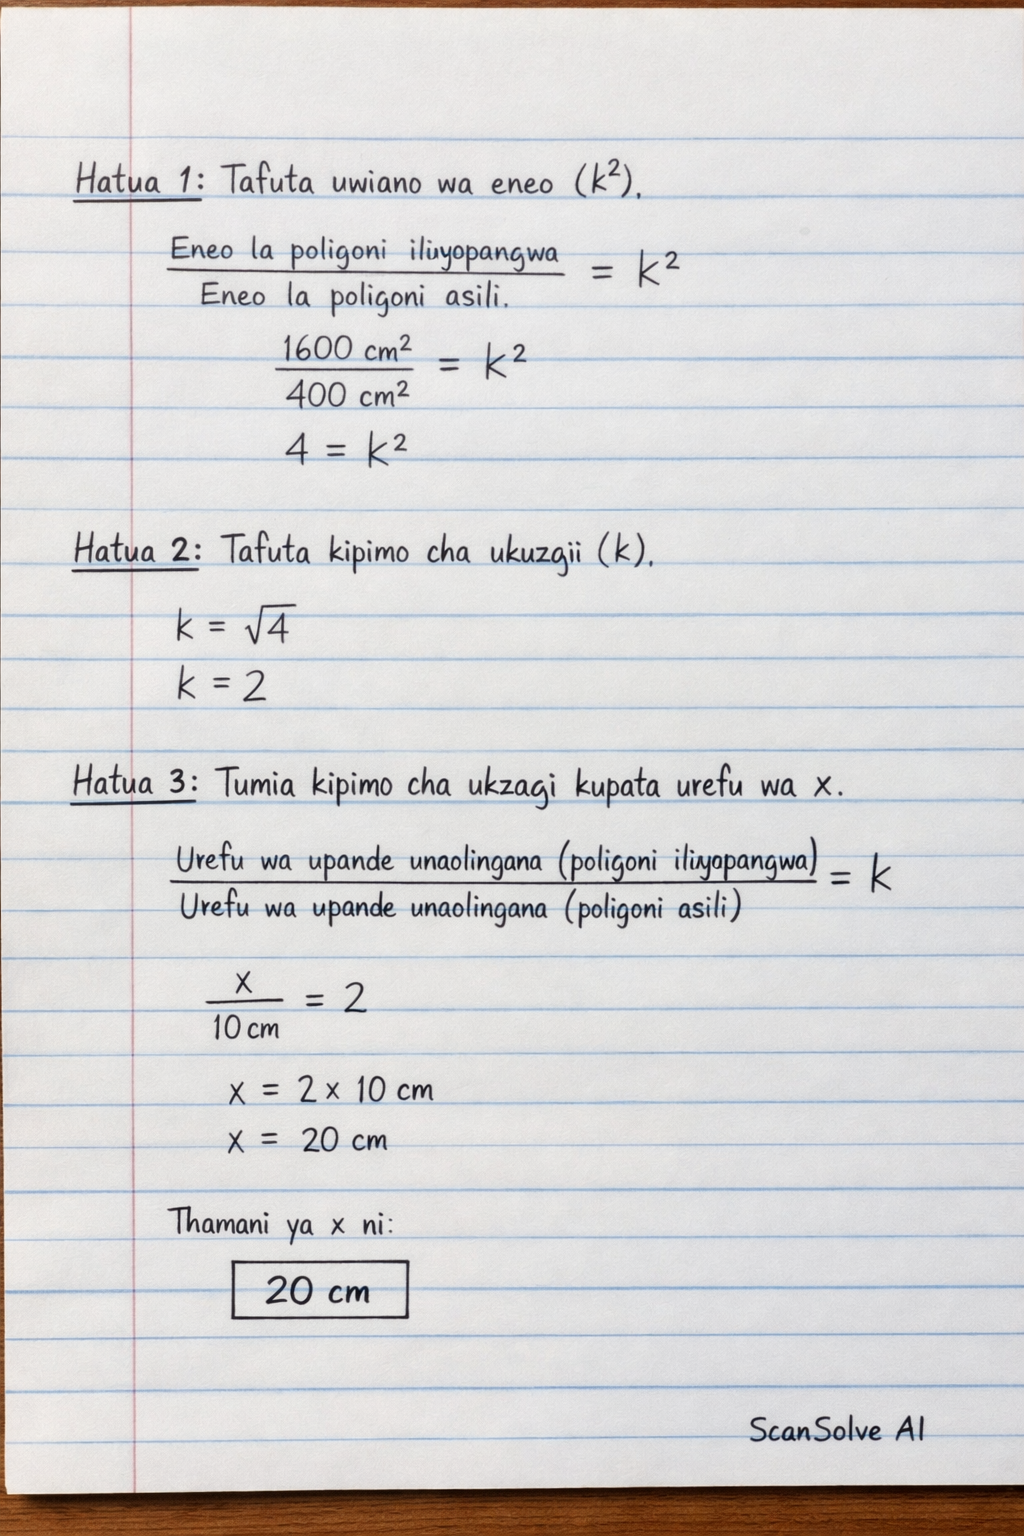 Hatua 1: Tafuta uwiano wa eneo (k²).
Eneo la poligoni iliuyopangwa
Eneo la poligoni asili.
= k²
1600 cm²
400 cm²
= k²
4 = k²
Hatua 2: Tafuta kipimo cha ukuzgii (k).
k = √4
k = 2
Hatua 3: Tumia kipimo cha ukzagi kupata urefu wa x.
Urefu wa upande unaolingana (poligoni iliyopangwa)
Urefu wa upande unaolingana (poligoni asili)
= k
x
10 cm
= 2
x = 2 x 10 cm
x = 20 cm
Thamani ya x ni:
20 cm
ScanSolve AI